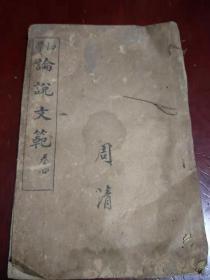 初學論說文範 卷四
周清